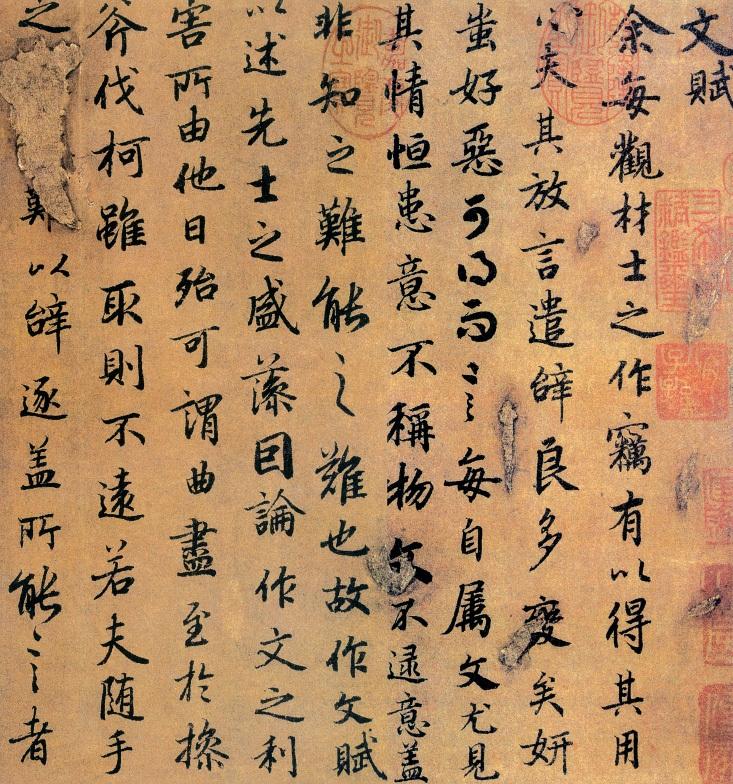 文賦
余每觀材士之作竊有以得其用
心夫其放言遣辭良多變矣妍
蚩好惡可得而言每自屬文尤見
其情恒患意不稱物文不逮意盖
非知之難能之難也故作文賦
以述先士之盛藻因論作文之利
害所由他日殆可謂曲盡至於操
斧伐柯雖取則不遠若夫随手
之難以辭逐盖所能言者
三希堂精鑑璽
宜子孫